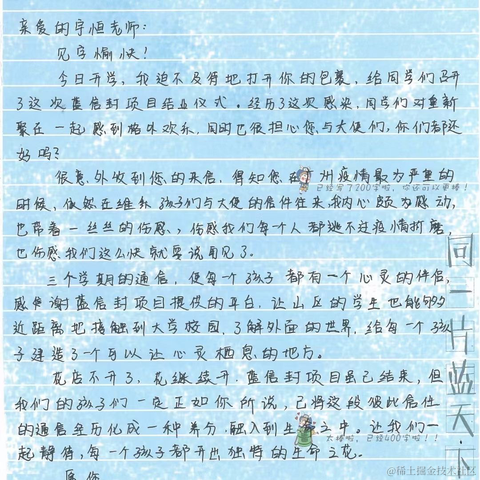 亲爱的宇恒老师:
见字愉快!
今日开学,我迫不及待地打开你的包裹,给同学们召开
了这次蓝信封项目结业仪式。经历了这次感染,同学们对重新
聚在一起感到格外欢乐,同时也很担心您与大使们,你们都还
好吗?
很意外收到您的来信,得知您在广州疫情最为严重的
已经写了200字啦,你还可以更棒!
时候,依然在维系孩子们与大使的信件往来我内心颇为感动,
也带着一丝丝的伤感,伤感我们每个人都逃不过疫情折磨,
也伤感我们这么快就要说再见了。
三个学期的通信,使每一个孩子都有一个心灵的伴侣,
感谢蓝信封项目提供的平台,让山区的学生也能够
近距离地接触到大学校园,了解外面的世界,给每一个孩
子建造了一个可以让心灵栖息的地方。
花店不开了,花继续开,蓝信封项目虽已结束,但
我们的孩子们一定正如你所说,已将这段彼此信任
的通信经历化成一种养分,融入到生命之中。让我们一
太棒啦,已经400字啦!!
起静待,每一个孩子都开出独特的生命之花。
同一片蓝天下
@稀土掘金技术社区